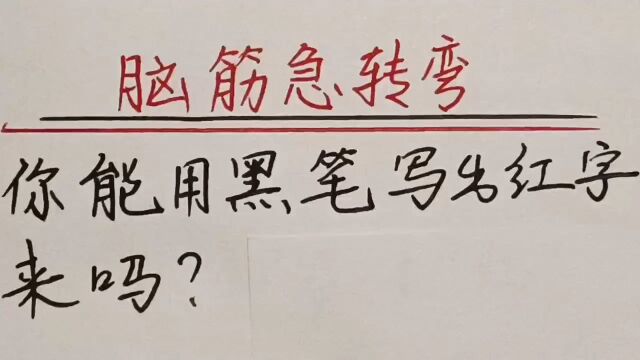 脑筋急转弯
你能用黑笔写出红字
来吗?